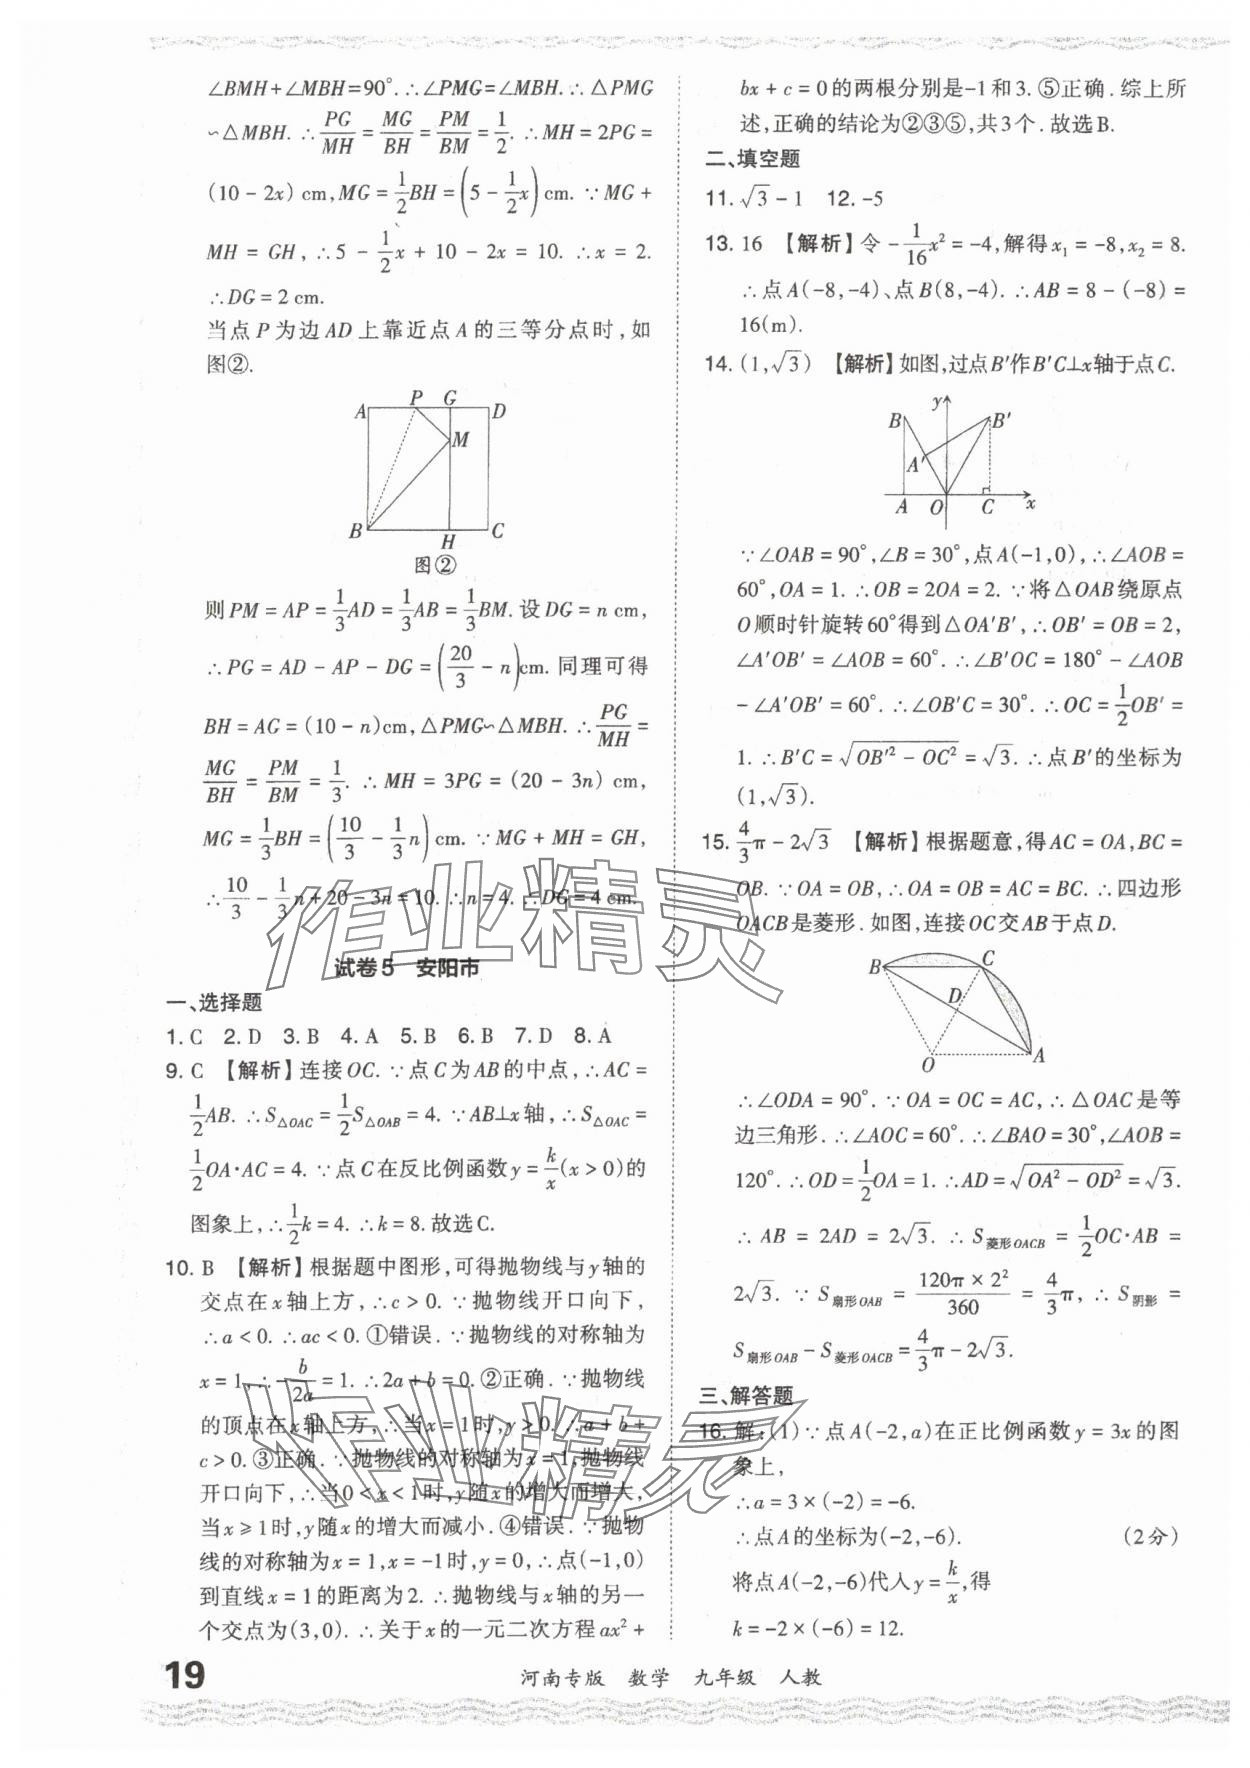 ∠BMH+∠MBH=90°.∴∠PMG=∠MBH.∴△PMG
∽△MBH. ∴PG/MH = MG/BH = PM/BM = 1/2. ∴MH = 2PG =
(10 - 2x) cm,MG = 1/2BH = (5 - 1/2x) cm. ∵MG +
MH = GH, ∴5 - 1/2x + 10 - 2x = 10. ∴x = 2.
∴DG = 2 cm.
当点P为边AD上靠近点A的三等分点时,如
图②.
A P G D
M
B H C
图②
则PM = AP = 1/3AD = 1/3AB = 1/3BM. 设DG = n cm,
∴PG = AD - AP - DG = (20/3 - n)cm. 同理可得
BH = AG = (10 - n)cm,△PMG∽△MBH. ∴PG/MH =
MG/BH = PM/BM = 1/3. ∴MH = 3PG = (20 - 3n) cm,
MG = 1/3BH = (10/3 - 1/3n) cm. ∵MG + MH = GH,
∴10/3 - 1/3n + 20 - 3n = 10. ∴n = 4. ∴DG = 4 cm.
试卷5 安阳市
一、选择题
1. C 2. D 3. B 4. A 5. B 6. B 7. D 8. A
9. C 【解析】连接OC. ∵点C为AB的中点,∴AC =
1/2AB. ∴S△OAC = 1/2S△OAB = 4. ∵AB⊥x轴,∴S△OAC =
1/2OA·AC = 4. ∵点C在反比例函数y = k/x(x > 0)的
图象上,∴1/2k = 4. ∴k = 8. 故选C.
10. B 【解析】根据题中图形,可得抛物线与y轴的
交点在x轴上方,∴c > 0. ∵抛物线开口向下,
∴a < 0. ∴ac < 0. ①错误. ∵抛物线的对称轴为
x = 1,∴-b/2a = 1. ∴2a + b = 0. ②正确. ∵抛物线
的顶点在x轴上方,∴当x = 1时,y > 0. ∴a + b +
c > 0. ③正确. ∵抛物线的对称轴为x = 1,抛物线
开口向下,∴当0 < x < 1时,y随x的增大而增大,
当x ⩾ 1时,y随x的增大而减小. ④错误. ∵抛物
线的对称轴为x = 1,x = -1时,y = 0,∴点(-1,0)
到直线x = 1的距离为2. ∴抛物线与x轴的另一
个交点为(3,0). ∴关于x的一元二次方程ax² +
bx + c = 0的两根分别是-1和3. ⑤正确. 综上所
述,正确的结论为②③⑤,共3个. 故选B.
二、填空题
11. √3 - 1 12. -5
13. 16 【解析】令 -1/16x² = -4,解得x₁ = -8,x₂ = 8.
∴点A(-8,-4)、点B(8,-4). ∴AB = 8 - (-8) =
16(m).
14. (1,√3) 【解析】如图,过点B′作B′C⊥x轴于点C.
y
B B′
A′
A O C x
∵∠OAB = 90°,∠B = 30°,点A(-1,0),∴∠AOB =
60°,OA = 1. ∴OB = 2OA = 2. ∵将△OAB绕原点
O顺时针旋转60°得到△OA′B′,∴OB′ = OB = 2,
∠A′OB′ = ∠AOB = 60°. ∴∠B′OC = 180° - ∠AOB
- ∠A′OB′ = 60°. ∴∠OB′C = 30°. ∴OC = 1/2OB′ =
1. ∴B′C = √(OB′² - OC²) = √3. ∴点B′的坐标为
(1,√3).
15. 4/3π - 2√3 【解析】根据题意,得AC = OA,BC =
OB. ∵OA = OB,∴OA = OB = AC = BC. ∴四边形
OACB是菱形. 如图,连接OC交AB于点D.
B C
D
O A
∴∠ODA = 90°. ∵OA = OC = AC,∴△OAC是等
边三角形. ∴∠AOC = 60°. ∴∠BAO = 30°,∠AOB =
120°. ∴OD = 1/2OA = 1. ∴AD = √(OA² - OD²) = √3.
∴AB = 2AD = 2√3. ∴S菱形OACB = 1/2OC·AB =
2√3. ∵S扇形OAB = 120π × 2²/360 = 4/3π, ∴S阴影 =
S扇形OAB - S菱形OACB = 4/3π - 2√3.
三、解答题
16. 解:(1)∵点A(-2,a)在正比例函数y = 3x的图
象上,
∴a = 3 × (-2) = -6.
∴点A的坐标为(-2,-6). (2分)
将点A(-2,-6)代入y = k/x,得
k = -2 × (-6) = 12.
19
河南专版 数学 九年级 人教
作业精灵
作业精灵